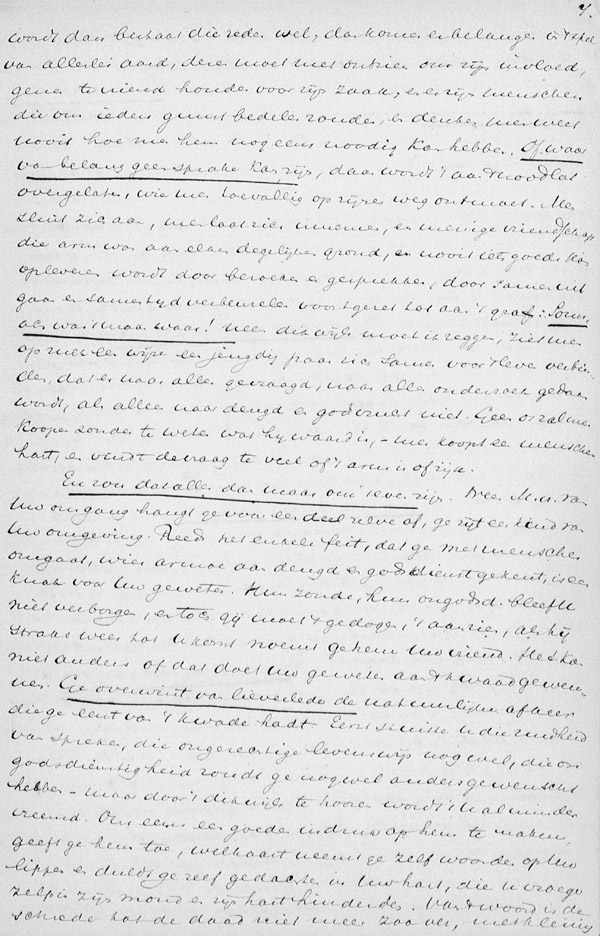 7.
wordt dan bestaat die reden wel; dan komen er belangen in 't spel
van allerlei aard, dien moet men ontzien om zijn invloed,
genen te vriend houden voor zijn zaak, en er zijn menschen
die om ieders gunst bedelen zonder, en denken men weet
nooit hoe men hem nog eens noodig kan hebben. Of waar
van belang geen sprake kan zijn, daar wordt 't aan 't noodlot
overgelaten, wie men toevallig op zijn weg ontmoet. Men
sluit zich aan, men laat zich innemen, en menige vriendschap
die arm was aan elken degelijken grond, en nooit iets goeds kan
opleveren wordt door bezoeken en gesprekken, door samen uit
gaan en samen tijd verbeuzelen voortgezet tot aan 't graf: Soms,
als was 't maar waar! neen dikwijls moet ik zeggen, ziet men
op dezelfde wijze een jeugdig paar zich samen voor 't leven verbin-
den, dat er naar alles gevraagd, naar alles onderzoek gedaan
wordt, als alleen naar deugd en godsvrucht niet. Geen os zal men
koopen zonder te weten wat hij waard is, – men koopt een menschen
hart, en vindt de vraag te veel of 't arm is of rijk.
En zou dat alles dan maar om 't even zijn. Neen M. v. van
Uw omgang hangt ge voor een deel zelve af, ge zijt een kind van
Uw omgeving. Reeds het enkele feit, dat ge met menschen
omgaat, wier armoe aan deugd en godsdienst ge kent, is een
knak voor Uw geweten. Hun zonde, hun ongodsd. bleef U
niet verborgen, en toch gij moet 't gedogen, 't aanzien, als hij
straks weer tot U komt noemt ge hem Uw vriend. Het kan
niet anders of dat doet Uw geweten aan 't kwaad gewen-
nen. Ge overwint van lieverlede de natuurlijken afkeer
die ge eerst van 't kwade hadt. Eerst stuitte U die ruwheid
van spreken, die ongerechtige levenswijs nog wel, die on
godsdienstigheid zoudt ge nog wel anders gewenscht
hebben – maar door 't dikwijls te hooren wordt 't U al minder
vreemd. Om eens een goeden indruk op hem te maken,
geeft ge hem toe, welhaast neemt ge zelf woorden op Uw
lippen en duldt ge zelf gedachten in Uw hart, die U vroeger
zelfs in zijn mond en zijn hart hinderden. Van 't woord is de
schrede tot de daad niet meer zoo ver, met kleinig